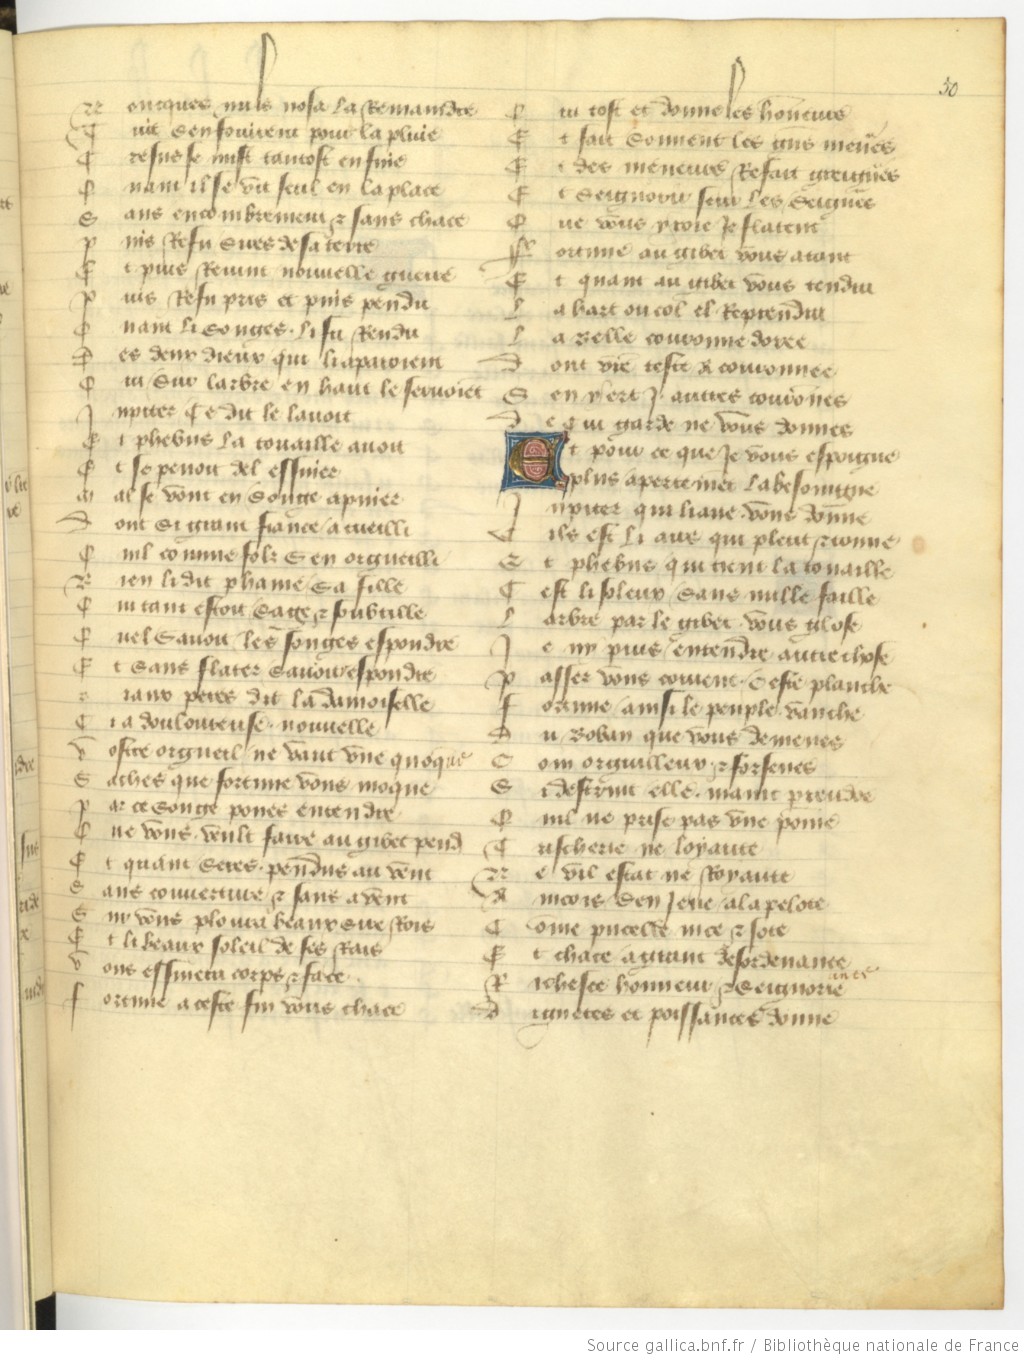 50
N onques nuls nosa la Remaindre
T uit Senfouirent pour la pluie
C resus se mist tantost en fuie
Q uant il se vit seul en la place
S ans encombrement & sans chace
P uis Refu Sires de sa terre
E t puis Revint nouvelle guerre
P uis Refu pris et puis pendu
Q uant li Songes li fu Rendu
D es deux dieux qui li aparoient
Q ui Sur larbre en haut le servoient
J upiter Ce dit le lavoit
E t phebus la touaille avoit
E t se penoit del essuier
M al se vont en Songe apuier
D ont Si grant fiance acueilli
Q uil comme folz Sen orgueilli
B ien li dit phanie Sa fille
Q ui tant estoit Sage & soubtille
Q uel Savoit les songes espondre
E t Sans flater Savoit espondre
B iaux peres dit la damoiselle
C i a douloureuse nouvelle
V ostre orgueil ne vaut une quoque
S aches que fortune vous moque
P ar ce Songe poues entendre
Q ue vous veult faire au gibet pend
E t quant Seres pendus au vent
S ans couverture & sans avent
S ur vous plouvra beaux Sire Rois
E t li beaux soleil de ses Rais
V ous essuiera corps & face
F ortune a ceste fin vous chace
Q ui tost et donne les honneurs
E t fait Souvent les gns meneurs
E t des meneurs Refait greigneurs
E t Seignorir seur les Seigneurs
Q ue vous yroie Je flatent
F ortune au gibet vous atant
E t quant au gibet vous tendra
L a hart ou col el Reprendra
L a Belle couronne doree
D ont vre teste a couronnee
S en y ert J autres couronnes
D e Qui garde ne vous donnes
E t pour ce que Je vous espoigne
plus apertement la besoingne
J upiter qui liaue vous donne
C ils est li airs qui pleut & tonne
E t phebus qui tient la touaille
C est li soleux Sans nulle faille
L arbre par le gibet vous glose
J e ny puis entendre autre chose
P asser vous couvient Ceste planche
F ortune ainsi le peuple vanche
D u Boban que vous demenes
C om orguilleux & forsenes
S i destruit elle maint preudoe
Q uil ne prise pas une pome
T richerie ne loyaute
N e vil estat ne Royaute
A incois Sen Jeue a la pelote
C ome pucelle nice & sote
E t chace a grant desordenance
R ichesce honneur & Seignorie ance
D ignetes et poissances donne
Source gallica.bnf.fr / Bibliothèque nationale de France